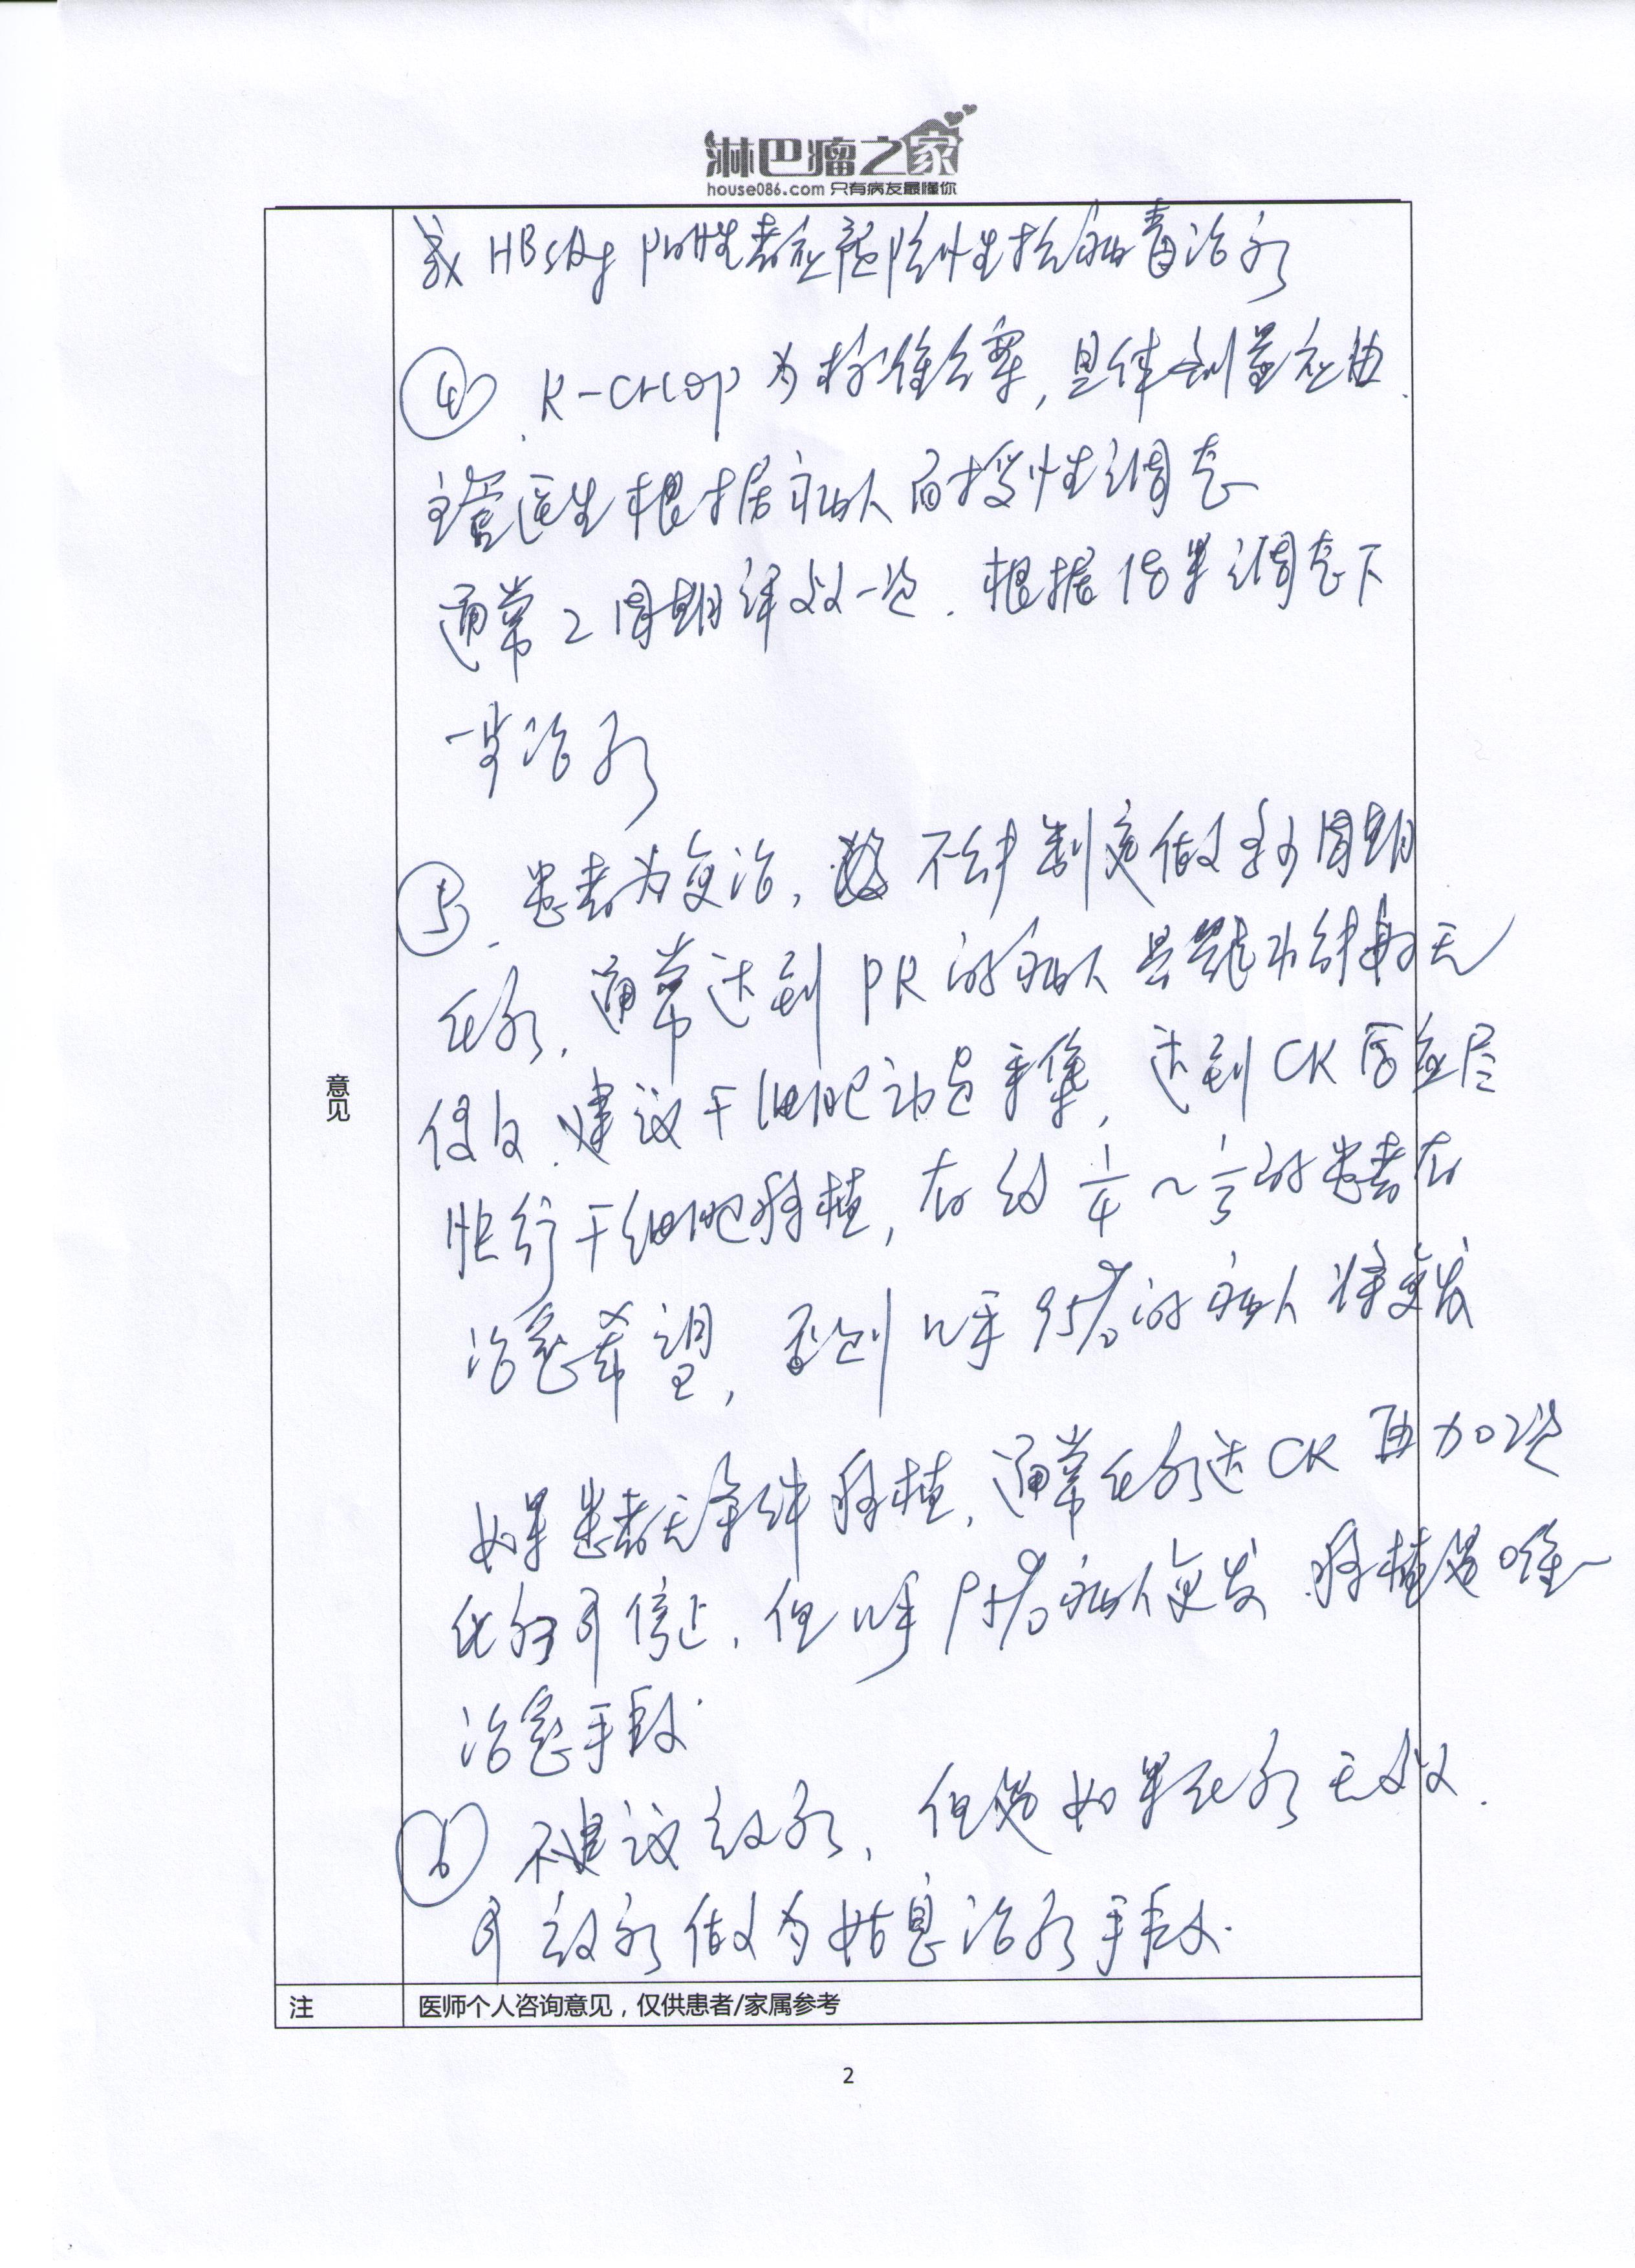 淋巴瘤之家
house086.com 只有病友最懂你
或 HBsAg 阳性者应预防性抗病毒治疗
④ R-CHOP 为标准方案，具体剂量应由
主管医生根据病人耐受性调整
通常2周期评效一次. 根据结果调整下
一步治疗
⑤. 患者为复治, 不能制定做多少周期
化疗, 通常达到 PR 的病人 骨髓
侵及. 建议干细胞动员采集, 达到 CR 后应尽
快行干细胞移植, 有约 1/4 ~ 1/3 的患者有
治愈希望, 否则几乎 95% 的病人将复发
如果患者无条件移植, 通常化疗达 CR 再加2次
化疗可停止, 但几乎 95% 病人复发 移植是唯一
治愈手段.
⑥ 不建议放疗, 但是如果化疗无效.
可放疗做为姑息治疗手段.
意见
注 医师个人咨询意见，仅供患者/家属参考
2